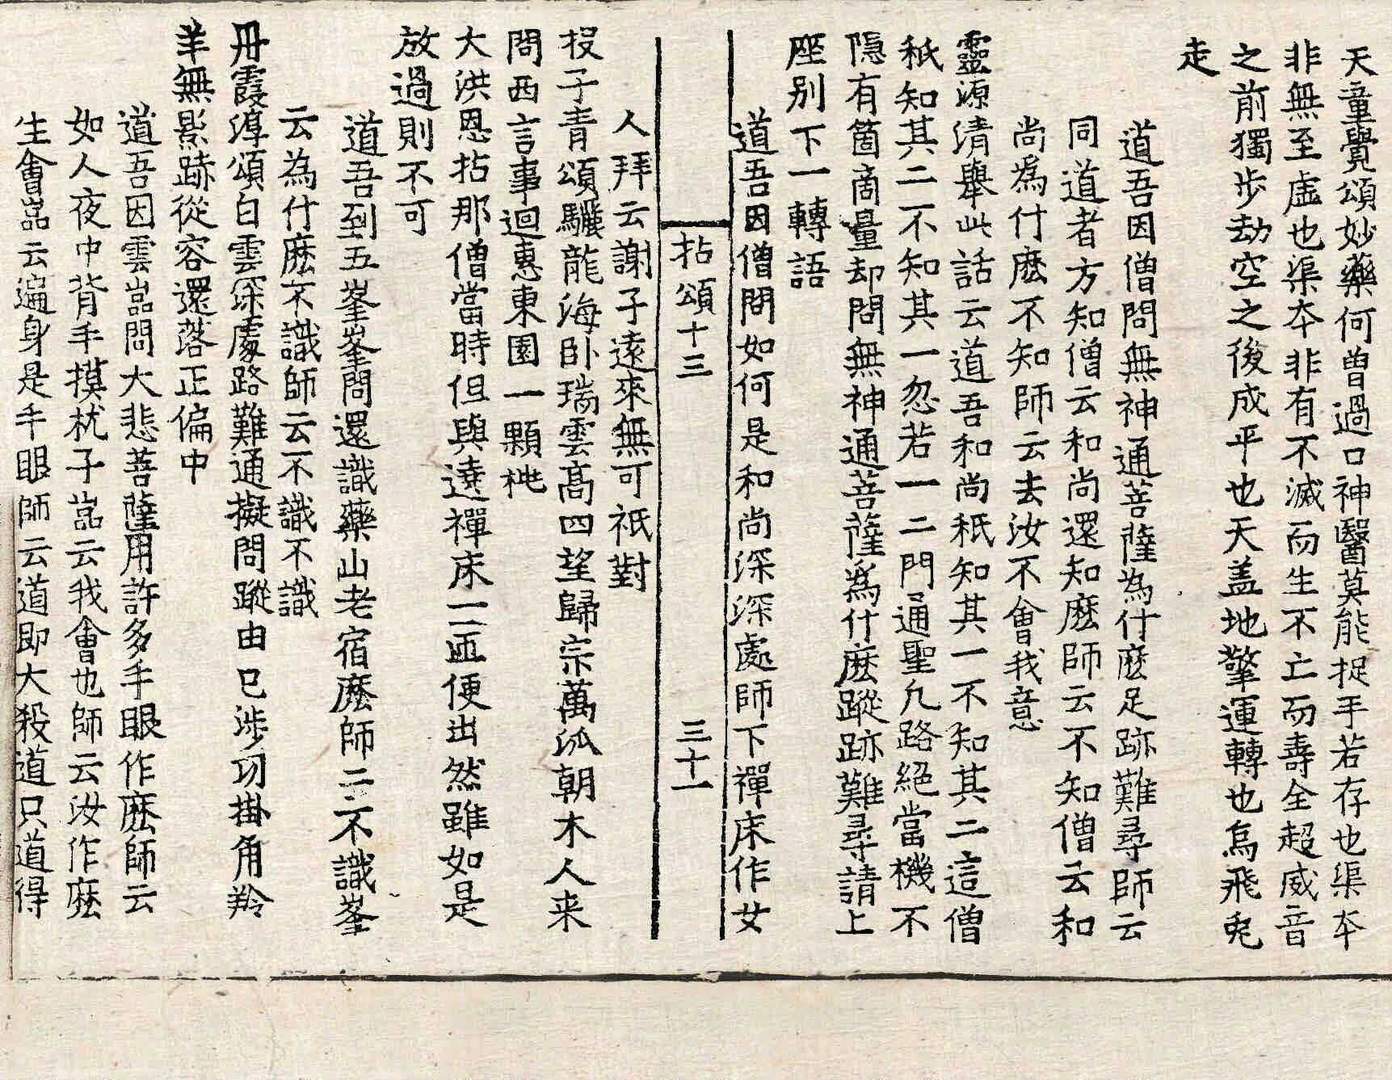 天童覺頌妙藥何曾過口神醫莫能捉手若存也渠夲
非無至虛也渠夲非有不滅而生不亡而壽全超威音
之前獨步劫空之後成平也天盖地擎運轉也烏飛兎
走
道吾因僧問無神通菩薩為什麽足跡難尋師云
同道者方知僧云和尚還知麽師云不知僧云和
尚爲什麽不知師云去汝不會我意
靈源清舉此話云道吾和尚秖知其一不知其二這僧
秖知其二不知其一忽若一二門通聖凡路絕當機不
隐有箇商量却問無神通菩薩爲什麽蹤跡難尋請上
座别下一轉語
道吾因僧問如何是和尚深深處師下禪床作女
拈頌十三 三十一
人拜云謝子遠來無可祇對
投子青頌驪龍海卧瑞雲高四望歸宗萬派朝木人来
問西言事迴惠東園一顆桃
大洪恩拈那僧當時但與遶禪床一匝便出然雖如是
放過則不可
道吾到五峯峯問還識藥山老宿麽師云不識峯
云為什麽不識師云不識不識
丹霞淳頌白雲深處路難通擬問蹤由已涉功掛角羚
羊無影跡從容還落正偏中
道吾因雲嵓問大悲菩薩用許多手眼作麽師云
如人夜中背手摸枕子嵓云我會也師云汝作麽
生會嵓云遍身是手眼師云道即大殺道只道得